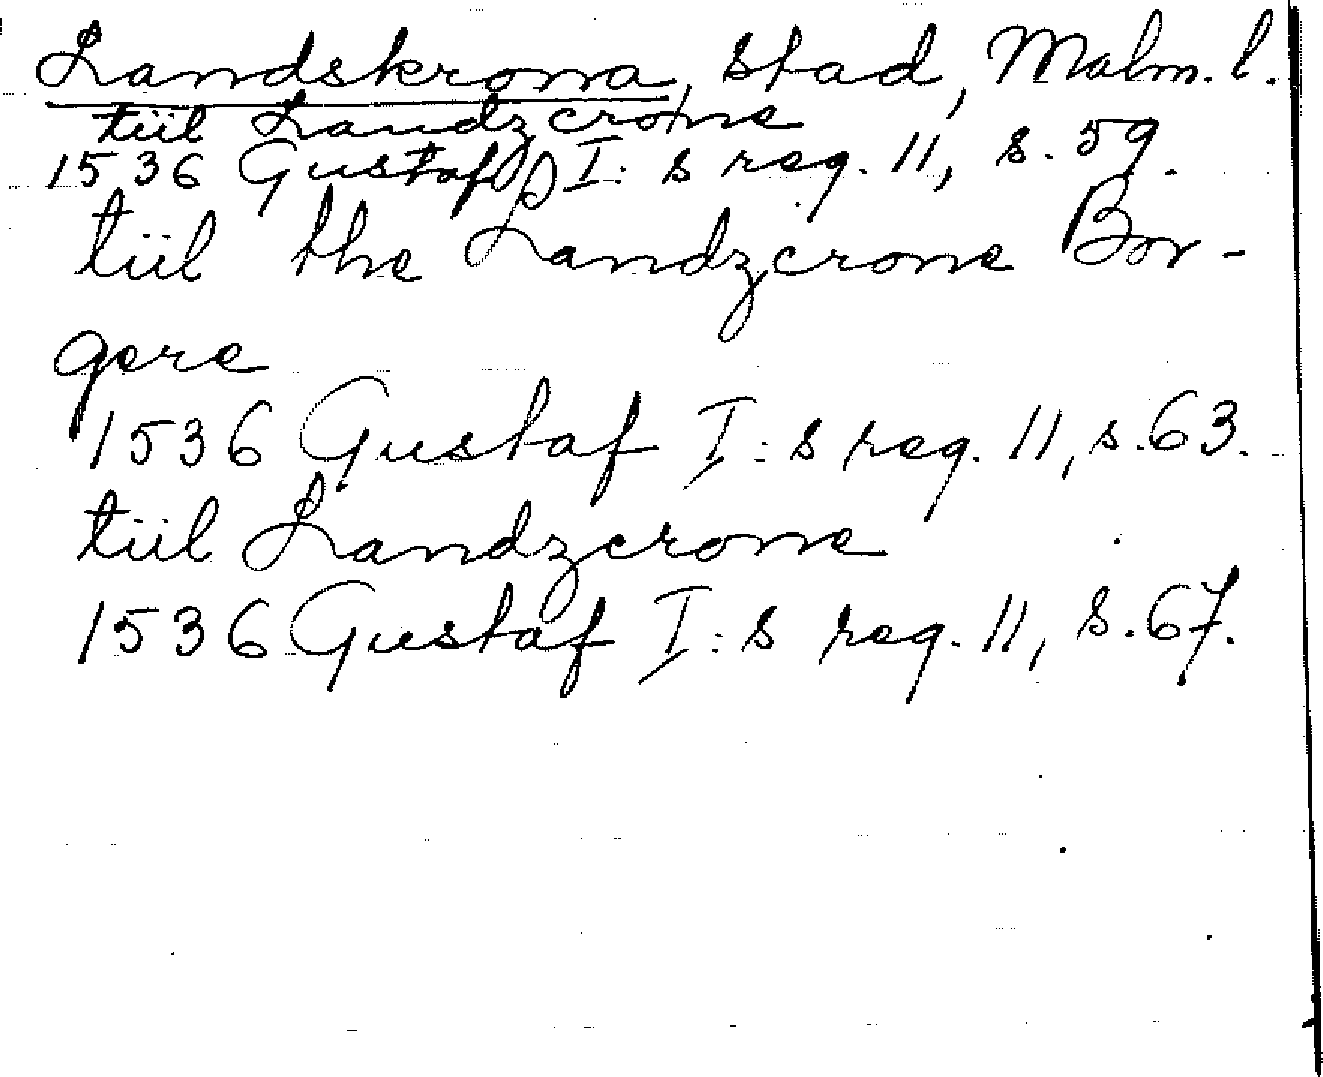 Landskrona, stad, Malm. l.
tiil Landzcrone
1536 Gustaf I:s reg. 11, s. 59.
tiil the Landzcrone Bor-
gere
1536 Gustaf I:s reg. 11, s. 63.
tiil Landzcrone
1536 Gustaf I:s reg. 11, s. 67.